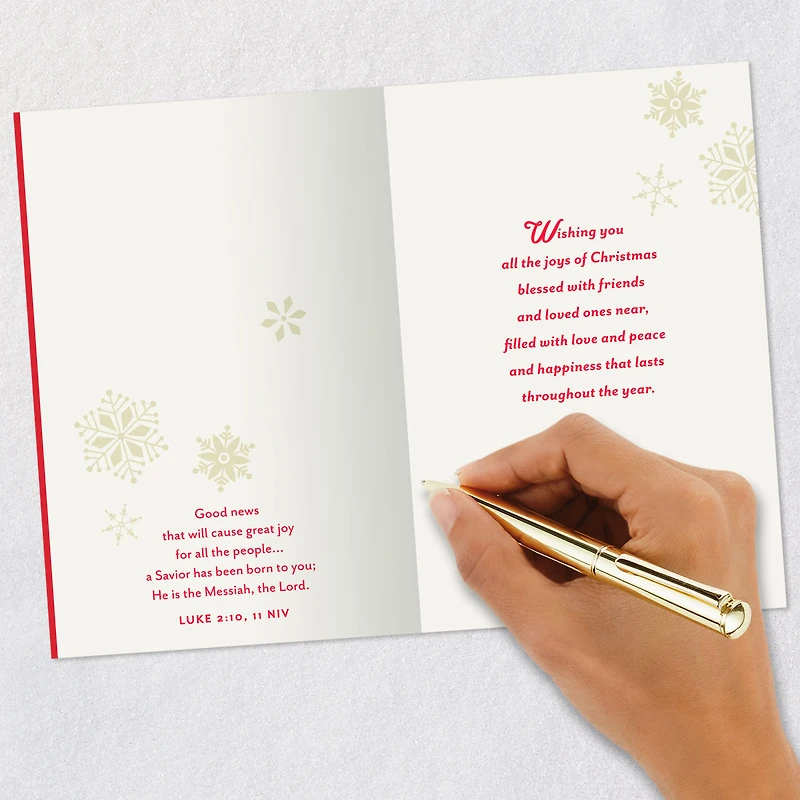 Good news
that will cause great joy
for all the people...
a Savior has been born to you;
He is the Messiah, the Lord.
LUKE 2:10, 11 NIV
Wishing you
all the joys of Christmas
blessed with friends
and loved ones near,
filled with love and peace
and happiness that lasts
throughout the year.